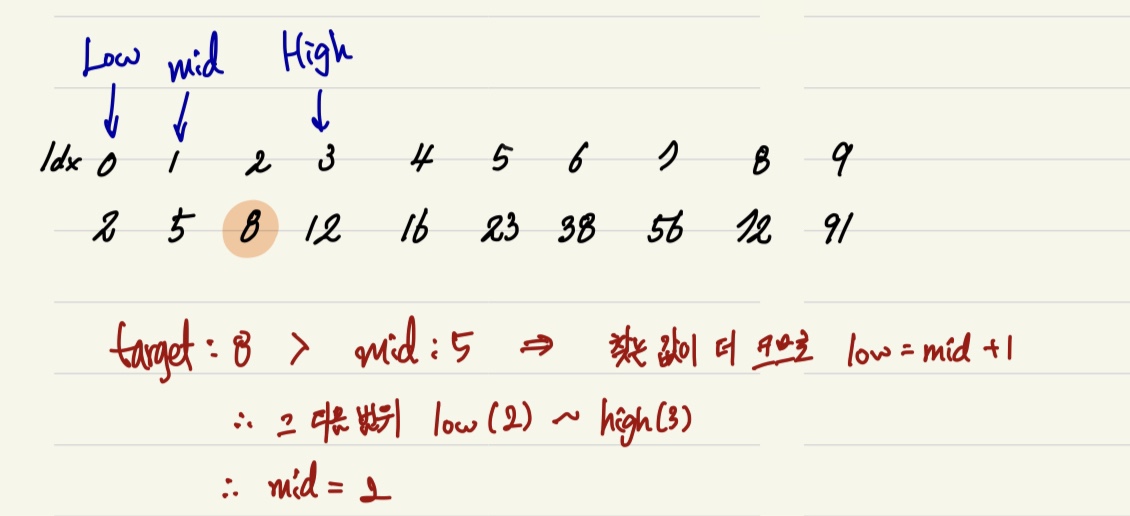 Low mid High
Idx 0 1 2 3 4 5 6 7 8 9
2 5 8 12 16 23 38 56 72 91
target : 8 > mid : 5 ⇒ 찾는 값이 더 크므로 low = mid + 1
∴ 그 다음 범위 low (2) ~ high (3)
∴ mid = 2